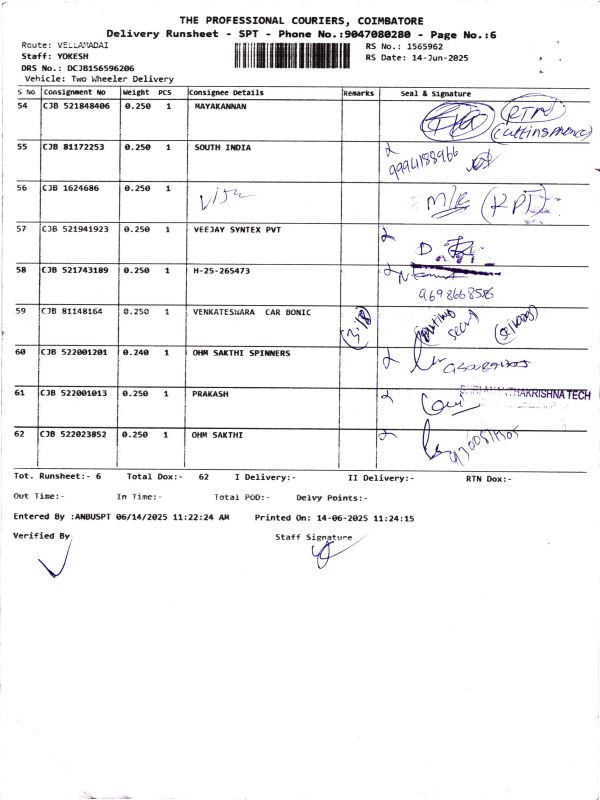 THE PROFESSIONAL COURIERS, COIMBATORE
Delivery Runsheet - SPT - Phone No.:9047080280 - Page No.:6
Route: VELLAMADAI
RS No.: 1565962
Staff: YOKESH
RS Date: 14-Jun-2025
DRS No.: DCJB156596206
Vehicle: Two Wheeler Delivery
S No Consignment No Weight PCS Consignee Details Remarks Seal & Signature
54 CJB 521848406 0.250 1 MAYAKANNAN
RTN
55 CJB 81172253 0.250 1 SOUTH INDIA
9994183966
56 CJB 1624686 0.250 1
57 CJB 521941923 0.250 1 VEEJAY SYNTEX PVT
58 CJB 521743189 0.250 1 H-25-265473
9698668586
59 CJB 81148164 0.250 1 VENKATESWARA CAR BONIC 3:18
60 CJB 522001201 0.240 1 OHM SAKTHI SPINNERS
61 CJB 522001013 0.250 1 PRAKASH
KRISHNA TECH
62 CJB 522023852 0.250 1 OHM SAKTHI
Tot. Runsheet:- 6 Total Dox:- 62 I Delivery:- II Delivery:- RTN Dox:-
Out Time:- In Time:- Total POD:- Delvy Points:-
Entered By :ANBUSPT 06/14/2025 11:22:24 AM Printed On: 14-06-2025 11:24:15
Verified By Staff Signature